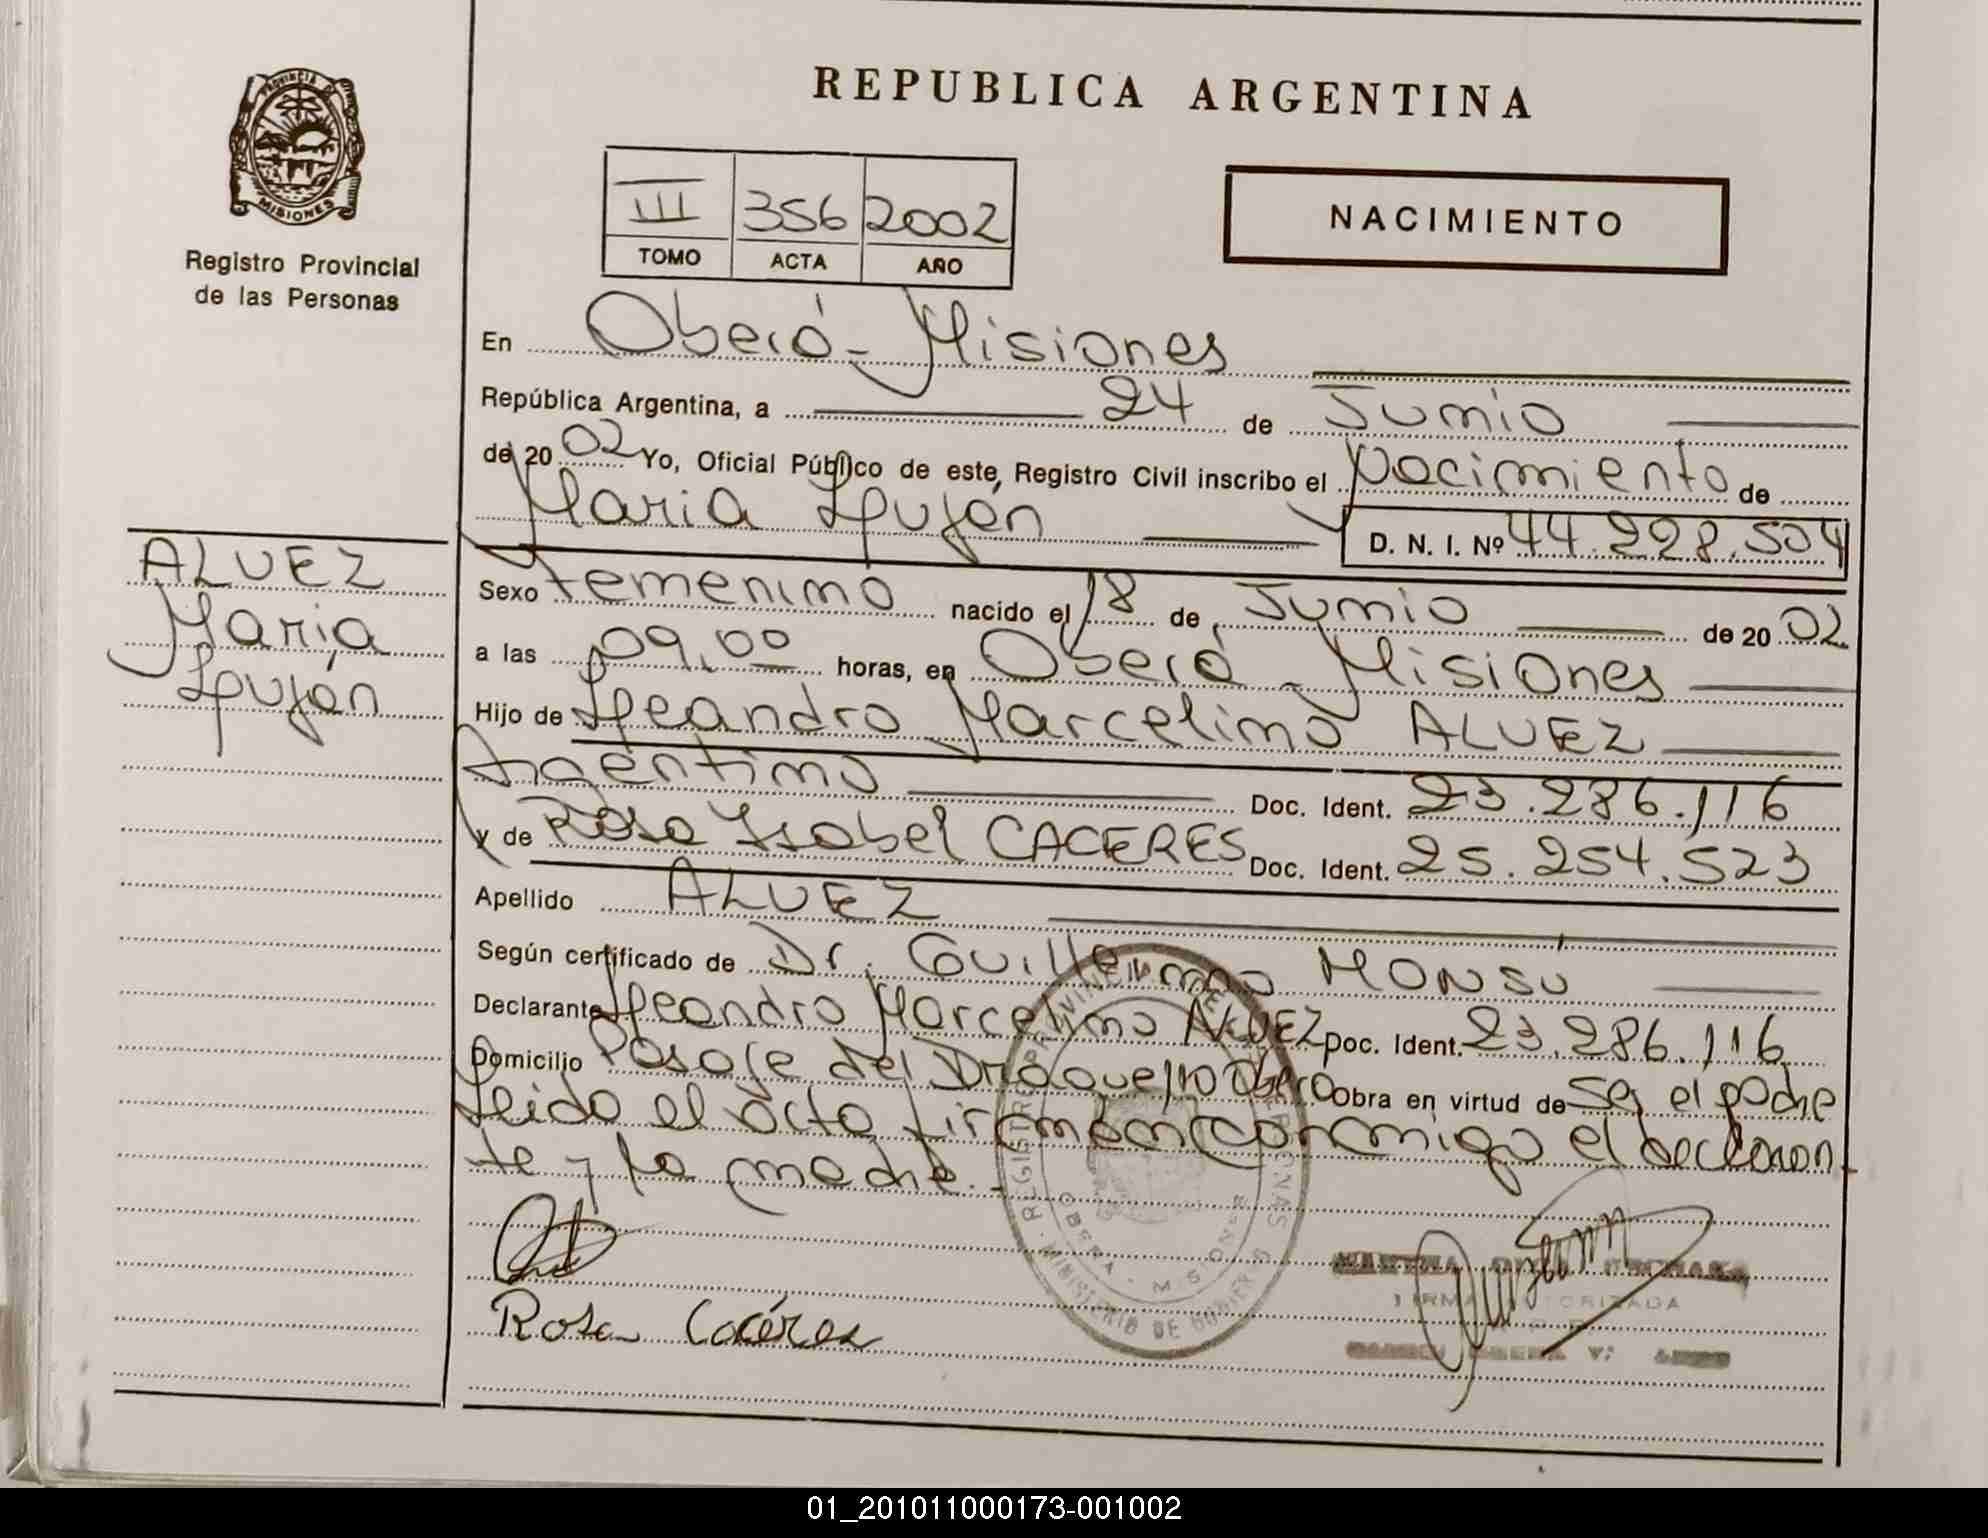 PROVINCIA DE
MISIONES
Registro Provincial
de las Personas
ALVEZ
Maria
Luján
REPUBLICA ARGENTINA
III 356 2002
TOMO ACTA AÑO
NACIMIENTO
En Oberá - Misiones
República Argentina, a 24 de Junio
de 2002 Yo, Oficial Público de este Registro Civil inscribo el nacimiento de
Maria Luján D. N. I. Nº 44.228.504
Sexo femenino nacido el 18 de Junio de 2002
a las 09,00 horas, en Oberá - Misiones
Hijo de Leandro Marcelino ALVEZ
Argentino Doc. Ident. 23.286.116
y de Rosa Isabel CACERES Doc. Ident. 25.254.523
Apellido ALVEZ
Según certificado de Dr. Guillermo MONSÚ
Declarante Leandro Marcelino ALVEZ Doc. Ident. 23.286.116
Domicilio Pasaje del Oberá Obra en virtud de ser el padre
Leido el acta firman conmigo el declaran-
te y la madre.-
REGISTRO PROVINCIAL DE LAS PERSONAS
OBERA - MISIONES
MINISTERIO DE GOBIERNO
Rosa Cacéres
FIRMA AUTORIZADA
01_201011000173-001002